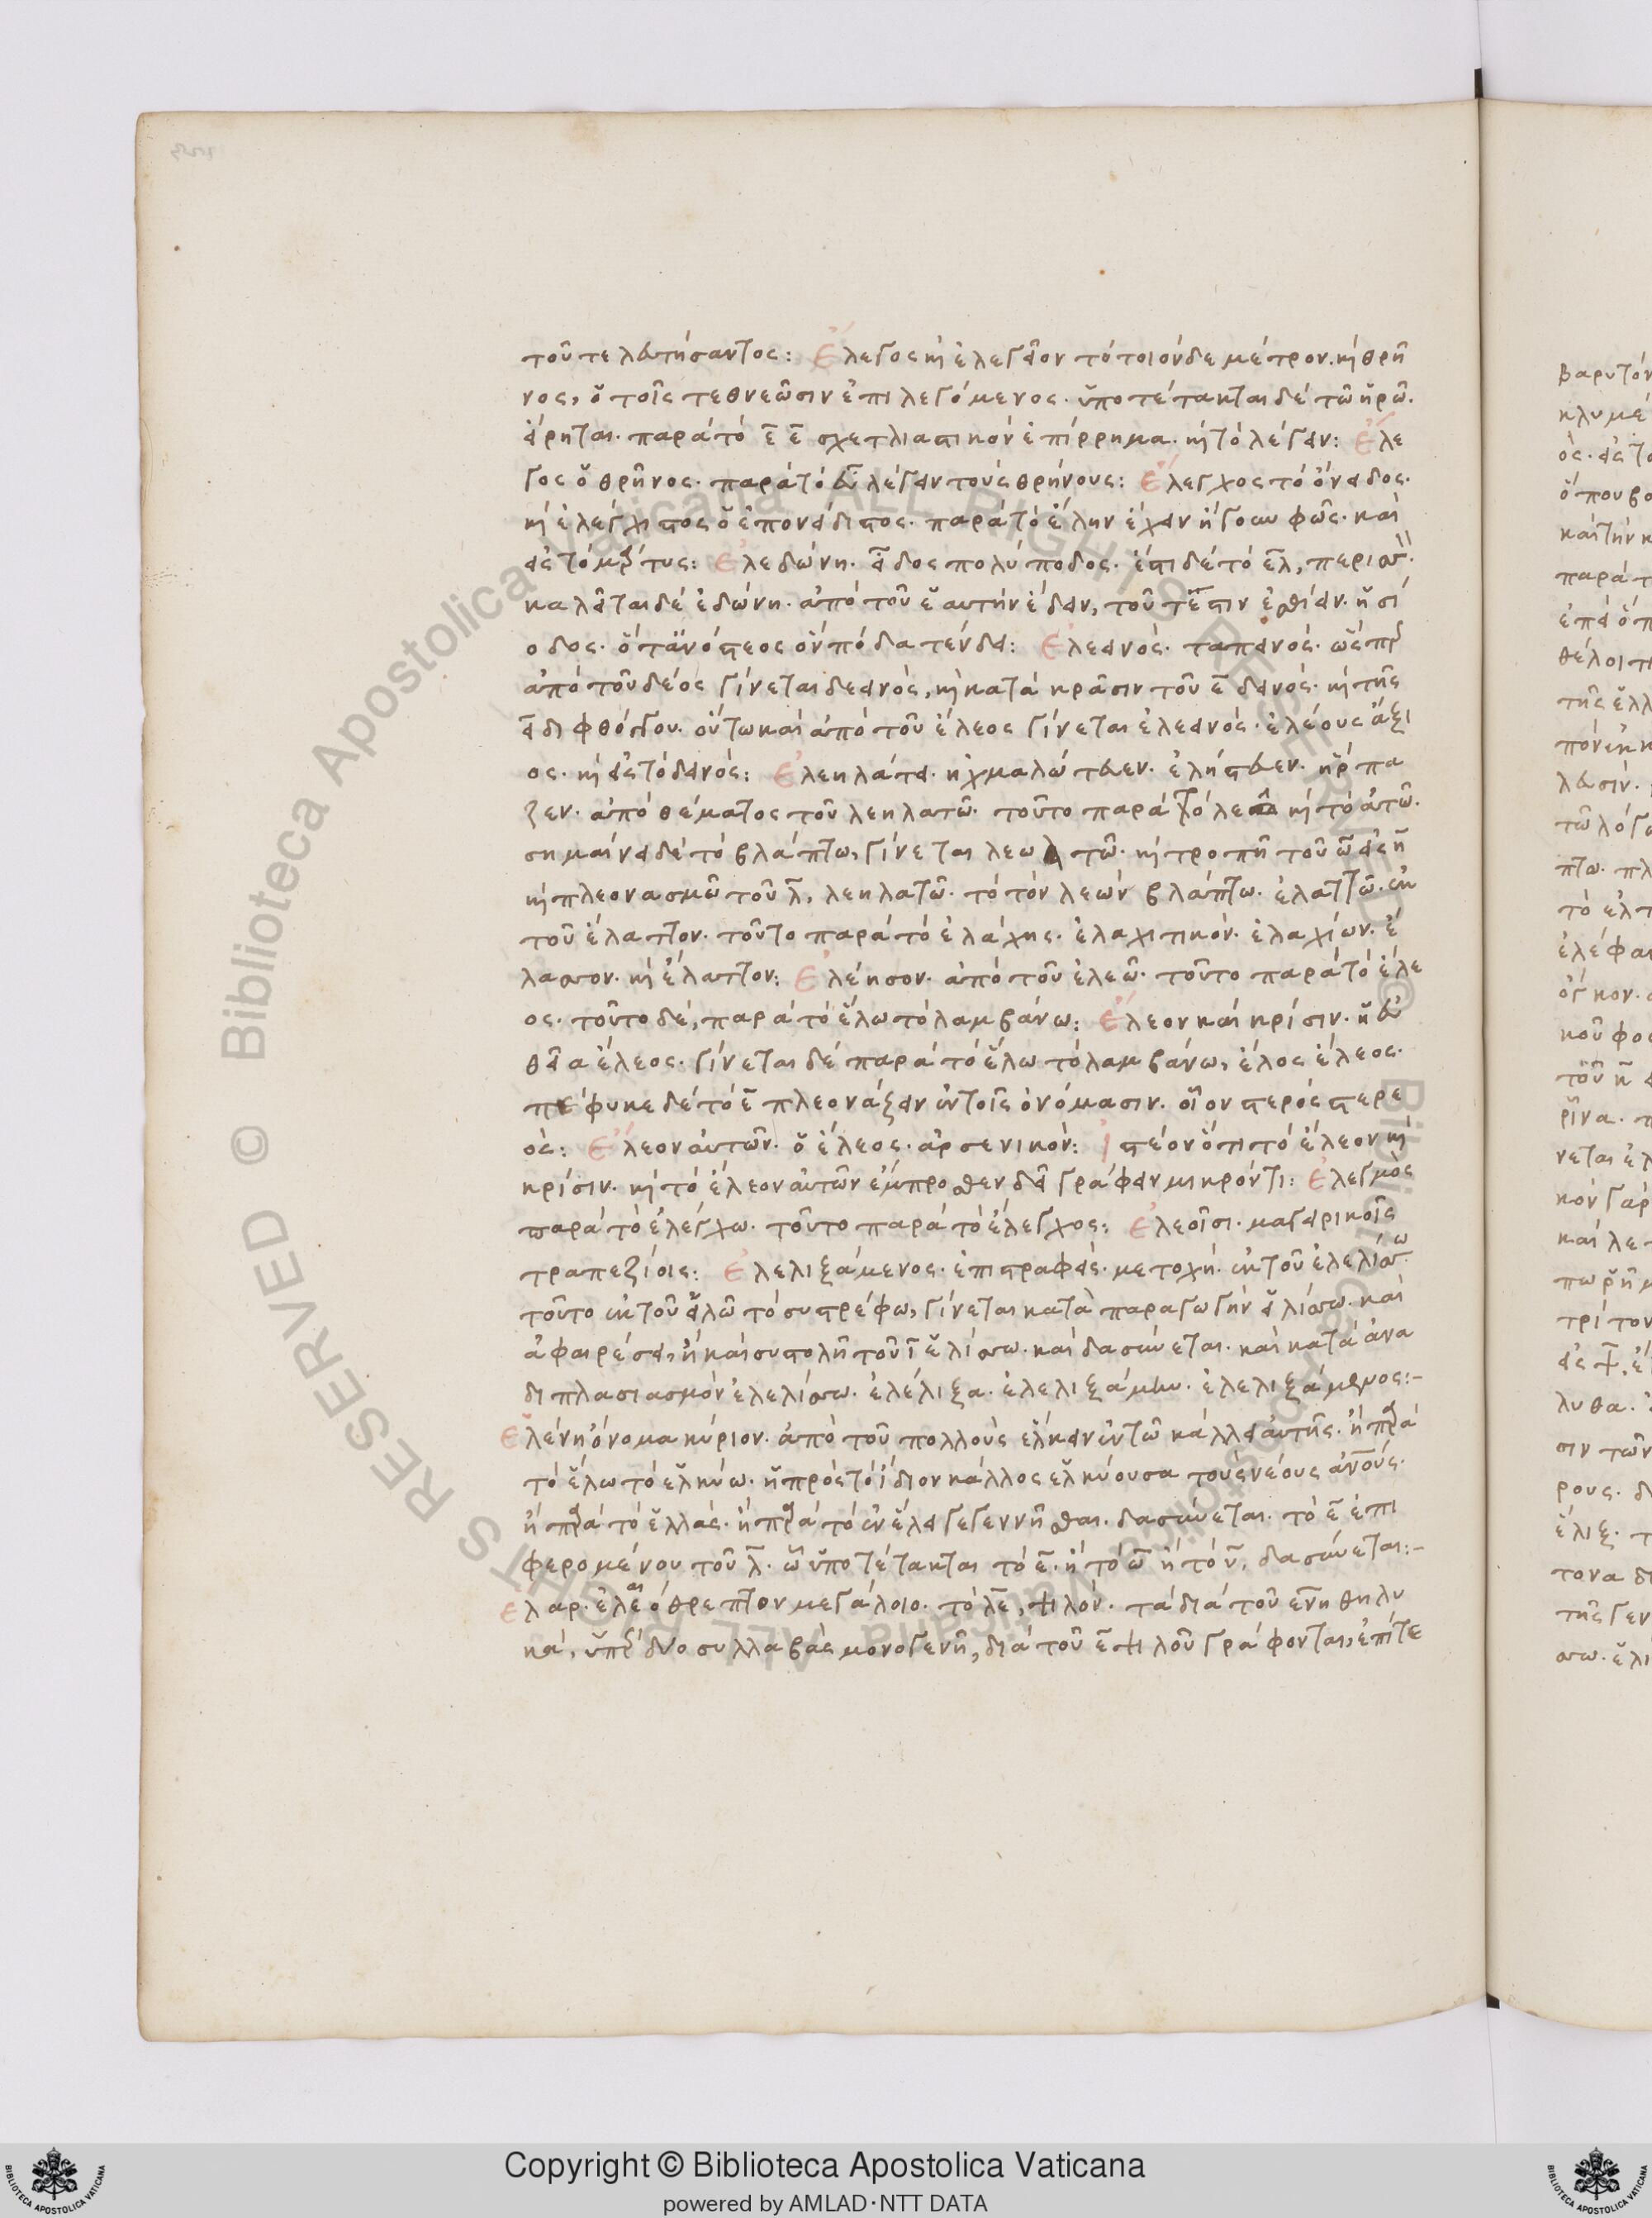 τοῦ τελευτήσαντος: Ἔλεγος κ(αὶ) ἐλεγεῖον τὸ τοιόνδε μέτρον. κ(αὶ) θρῆ
νος, ὁ τοῖς τεθνεῶσιν ἐπιλεγόμενος. ὑποτέτακται δὲ τῶ ἡρῶ.
εἴρηται. παρὰ τὸ ε̄ ε̄ σχετλιαστικὸν ἐπίρρημα. κ(αὶ) τὸ λέγειν: Ἔλε
γος ὁ θρῆνος. παρὰ τὸ εὖ λέγειν τοὺς θρήνους: Ἔλεγχος τὸ ὄνειδος.
κ(αὶ) ἐλέγχιστος ὁ ἐπονείδιστος. παρὰ τὸ ἕλην ἔχειν ἤγουν φῶς. καὶ
εἰς τὸ μάρτυς: Ἐλεδώνη. εἶδος πολύποδος. ἔστι δὲ τὸ ε̄λ, περισσ.
καλεῖται δὲ ἐδώνη. ἀπὸ τοῦ ἑαυτὴν ἔδειν, τοῦτ' ἔστιν ἐσθίειν. ἡσί
οδος. ὅτ' ἀνόστεος ὃν πόδα τένδει: Ἐλεεινός. ταπεινός. ὥσπερ
ἀπὸ τοῦ δέος γίνεται δεεινός, κ(αὶ) κατὰ κρᾶσιν τοῦ ε̄ δεινός. κ(αὶ) τῆς
ει διφθόγγου. οὕτω καὶ ἀπὸ τοῦ ἔλεος γίνεται ἐλεεινός. ἐλέους ἄξι
ος. κ(αὶ) εἰς τὸ δεινός: Ἐλεηλάτει. ἠχμαλώτευεν. ἐλήστευεν. ἥρπα
ζεν. ἀπὸ θέματος τοῦ λεηλατῶ. τοῦτο παρὰ τὸ λε κ(αὶ) τὸ ἀτῶ.
σημαίνει δὲ τὸ βλάπτω, γίνεται λεω τῶ. κ(αὶ) τροπῆ τοῦ ω̄ εἰς η̄
κ(αὶ) πλεονασμῶ τοῦ λ̄, λεηλατῶ. τὸ τὸν λεὼν βλάπτω. ἐλαττῶ. ἐκ
τοῦ ἔλαττον. τοῦτο παρὰ τὸ ἐλάχης. ἐλαχιστικόν. ἐλαχίων. ἐ
λασσον. κ(αὶ) ἔλαττον: Ἐλέησον. ἀπὸ τοῦ ἐλεῶ. τοῦτο παρὰ τὸ ἔλε
ος. τοῦτο δὲ, παρὰ τὸ ἕλω τὸ λαμβάνω: Ἔλεον καὶ κρίσιν. ἡ εὐ
θεῖα ἔλεος. γίνεται δὲ παρὰ τὸ ἕλω τὸ λαμβάνω, ἔλος ἔλεος.
πέφυκε δὲ τὸ ε̄ πλεονάζειν ἐν τοῖς ὀνόμασιν. οἷον στερός στερε
ός: Ἔλεον αὐτῶν. ὁ ἔλεος. ἀρσενικόν: Ἰστέον ὅτι τὸ ἔλεον κ(αὶ)
κρίσιν. κ(αὶ) τὸ ἔλεον αὐτῶν ἔμπροσθεν δεῖ γράφειν μικρόν τι: Ἐλεγμὸς
παρὰ τὸ ἐλέγχω. τοῦτο παρὰ τὸ ἔλεγχος: Ἐλεοῖσι. μαγειρικοῖς
τραπεζίοις: Ἐλελιξάμενος. ἐπιστραφείς. μετοχή. ἐκ τοῦ ἐλελίσσω.
τοῦτο ἐκ τοῦ εἱλῶ τὸ συστρέφω, γίνεται κατὰ παραγωγὴν εἱλίσσω. καὶ
ἀφαιρέσει, ἢ καὶ συστολῆ τοῦ ῑ ἑλίσσω. καὶ δασύνεται. καὶ κατὰ ἀνα
διπλασιασμὸν ἐλελίσσω. ἐλέλιξα. ἐλελιξάμην. ἐλελιξάμενος:-
Ἑλένη ὄνομα κύριον. ἀπὸ τοῦ πολλοὺς ἕλκειν ἐν τῶ κάλλει αὐτῆς. ἢ παρὰ
τὸ ἕλω τὸ ἑλκύω. ἡ πρὸς τὸ ἴδιον κάλλος ἑλκύουσα τοὺς νέους ἀνους.
ἢ παρὰ τὸ ἑλλάς. ἢ παρὰ τὸ ἐν ἕλει γεγεννῆσθαι. δασύνεται. τὸ ε̄ ἐπι
φερομένου τοῦ λ̄. ὧ ὑποτέτακται τὸ ε̄. ἢ τὸ ω̄ ἢ τὸ ῡ, δασύνεται:-
Ἔλαρ. ἐλεαι ὁ θρεπτον μεγάλοιο. τὸ λε, ψιλόν. τὰ διὰ τοῦ ενη θηλυ
κά, ὑπὲρ δύο συλλαβὰς μονογενῆ, διὰ τοῦ ε̄ ψιλοῦ γράφονται, ἐπί τε
Copyright © Biblioteca Apostolica Vaticana
powered by AMLAD·NTT DATA